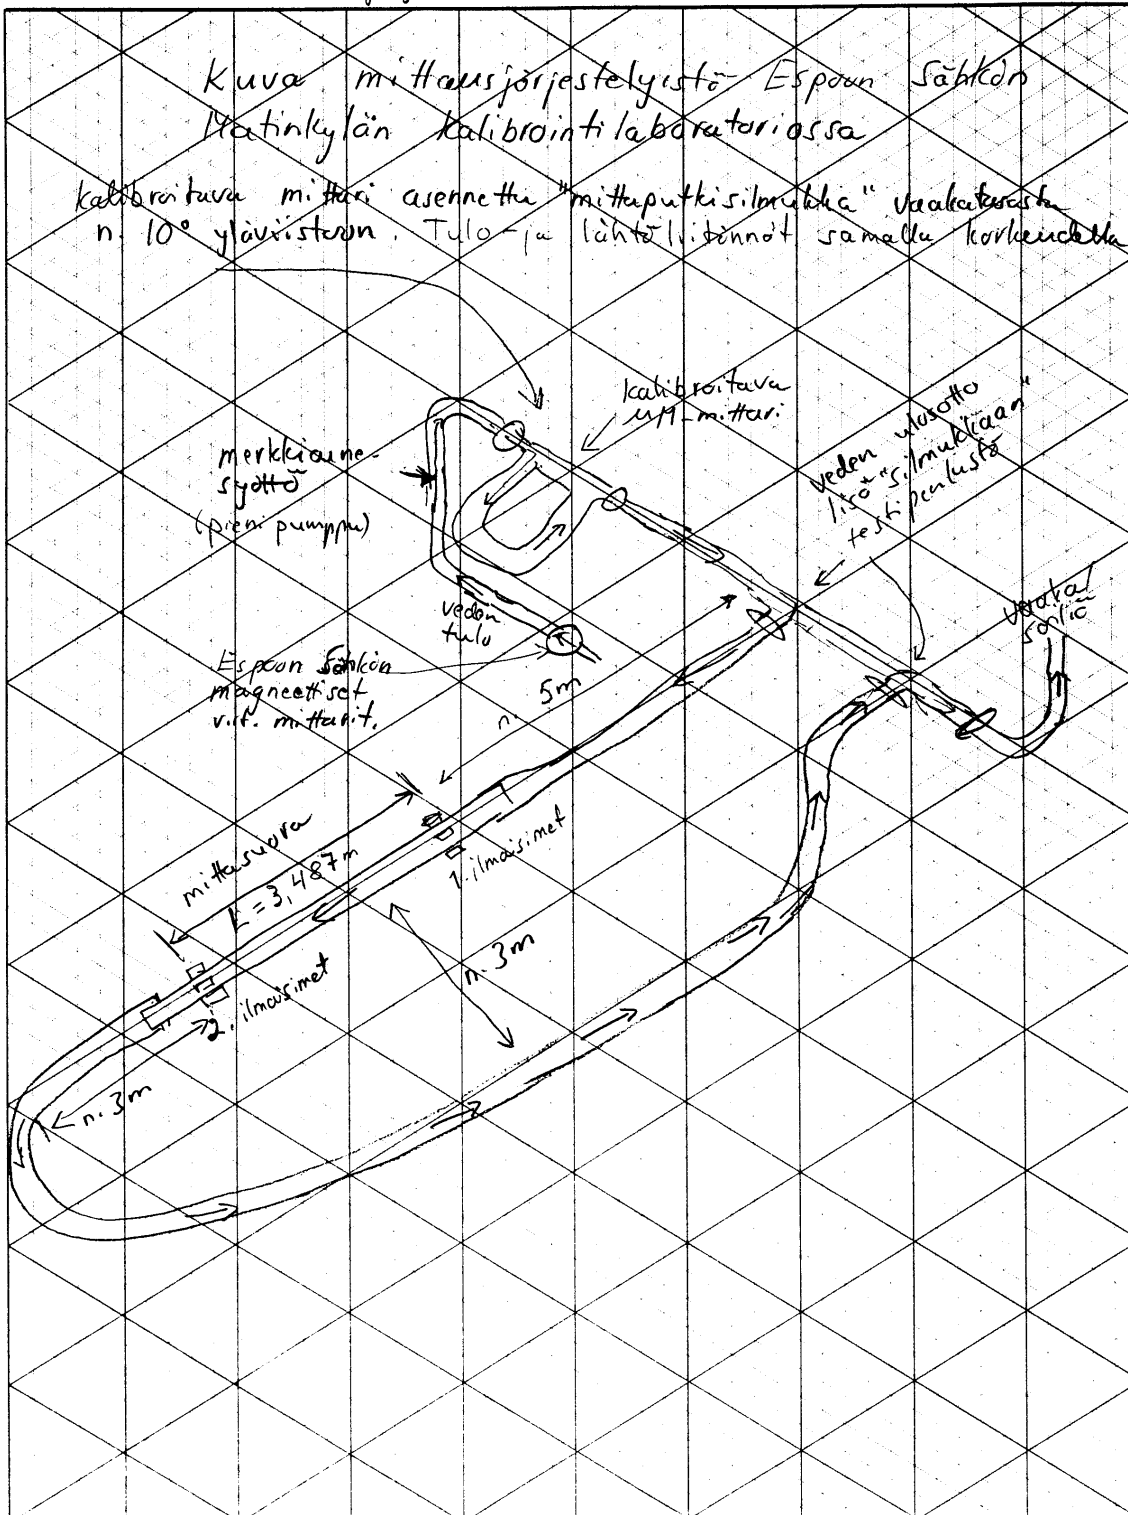 Kuva mittausjärjestelyistä Espoon Sähkön
Matinkylän kalibrointilaboratoriossa
kalibroitava mittari asennettu "mittaputkisilmukka" vaakatasosta
n. 10° yläviistoon. Tulo- ja lähtöliitännöt samalla korkeudella
kalibroitava
-mittari
merkkiaine-
syöttö
(pieni pumppu)
veden ulosotto
lisä "silmukkaan"
testipenkistä
vaaka/
säiliö
veden
tulo
Espoon Sähkön
magneettiset
mittarit.
n. 5m
mittasuora
L = 3,487 m
1. ilmaisimet
2. ilmaisimet
n. 3m
n. 3m